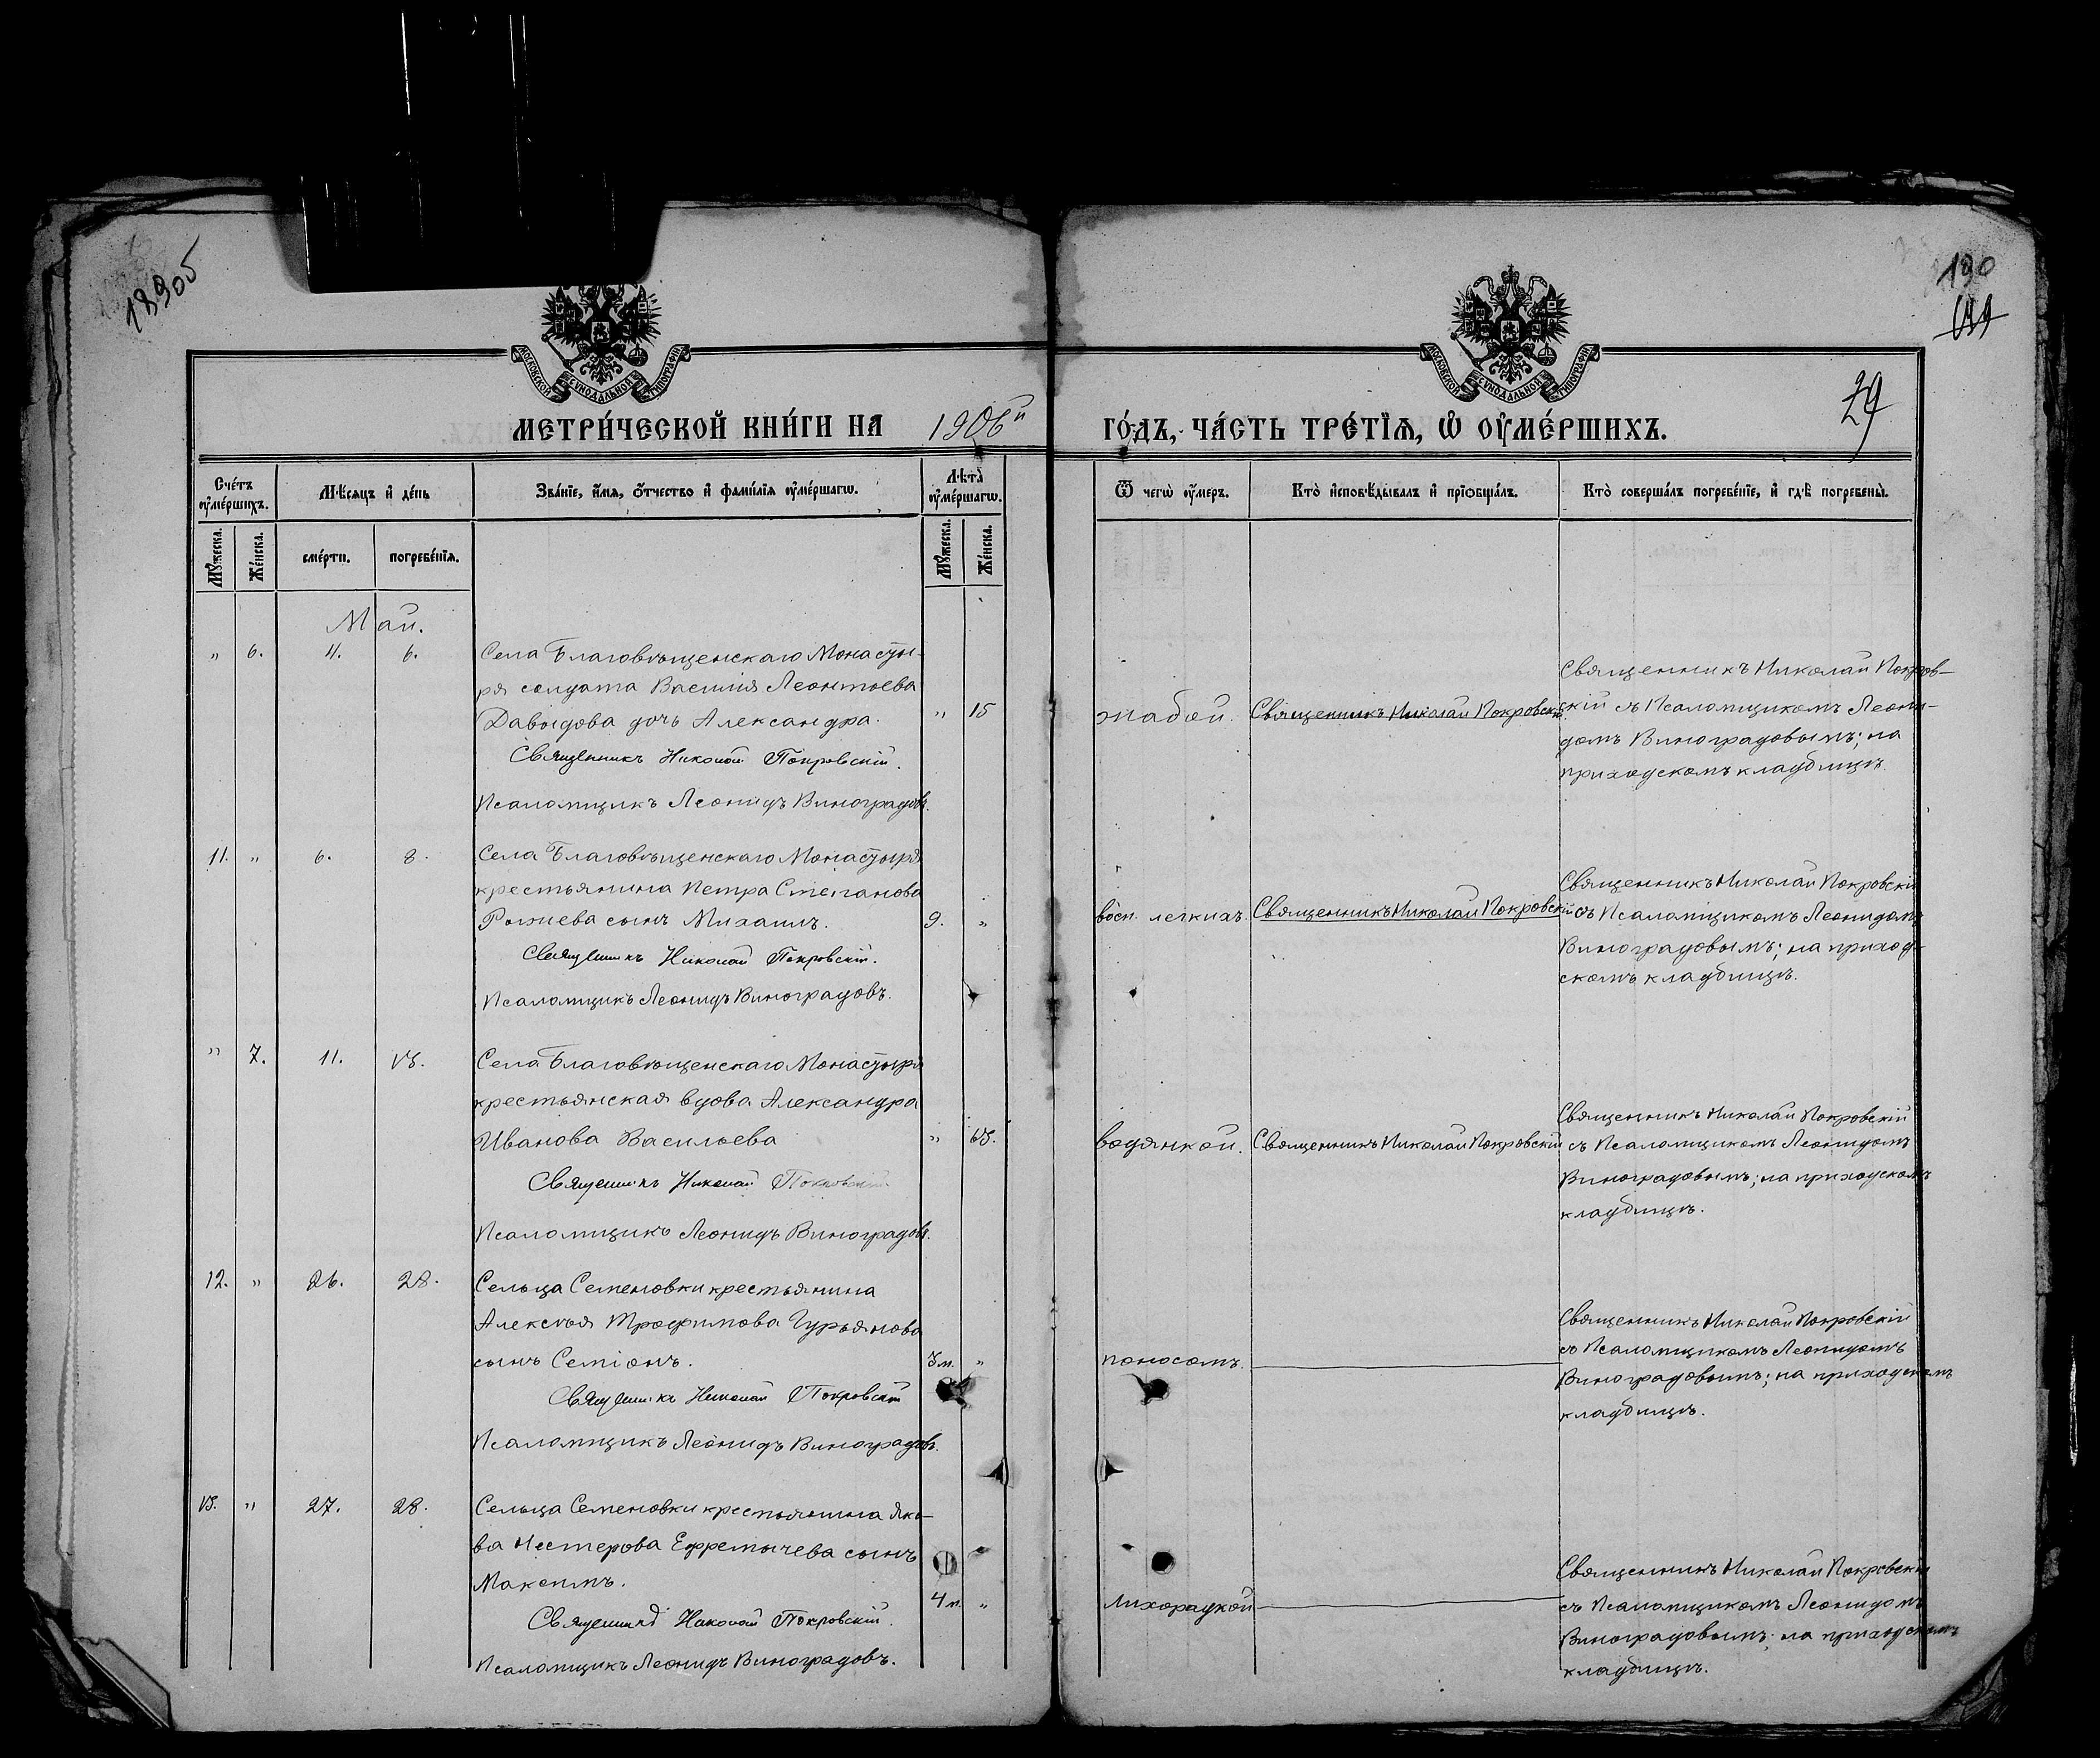 18905
190
29
МОСКОВСКОЙ СѴНОДАЛЬНОЙ ТИПОГРАФІИ
МОСКОВСКОЙ СѴНОДАЛЬНОЙ ТИПОГРАФІИ
МЕТРИ́ЧЕСКОЙ КНИ́ГИ НА 1906й ГО́ДЪ, ЧА́СТЬ ТРЕ́ТІѦ, Ѡ҆ ОУ҆МЕ́РШИХЪ.
Сче́тъ оу҆ме́ршихъ.
Мѣ́сѧцъ и҆ де́нь
Зва́нїе, и҆́мѧ, ѻ҆́тчество и҆ фами́лїѧ оу҆ме́ршагѡ.
Лѣта̀ оу҆ме́ршагѡ.
Ѿ чегѡ̀ оу҆́меръ.
Кто̀ и҆сповѣ́дывалъ и҆ прїѡбща́лъ.
Кто̀ соверша́лъ погребе́нїе, и҆ гдѣ̀ погребены̀.
Мꙋ́жеска.
Же́нска.
сме́рти.
погребе́нїѧ.
Мꙋ́жеска.
Же́нска.
Май.
„ 6. 4. 6. Села Благовѣщенскаго Монасты-
ря солдата Василія Леонтьева
Давыдова дочь Александра. „ 15
Священникъ Николай Покровскій.
Псаломщикъ Леонидъ Виноградовъ.
жабой. Священникъ Николай Покровскій
Священникъ Николай Покров-
скій съ Псаломщикомъ Леони-
домъ Виноградовымъ; на
приходскомъ кладбищѣ.
11. „ 6. 8. Села Благовѣщенскаго Монастыря
крестьянина Петра Степанова
Рожнева сынъ Михаилъ. 9. „
Священникъ Николай Покровскій.
Псаломщикъ Леонидъ Виноградовъ.
восп. легкихъ. Священникъ Николай Покровскій
Священникъ Николай Покровскій
съ Псаломщикомъ Леонидомъ
Виноградовымъ; на приход-
скомъ кладбищѣ.
„ 7. 11. 13. Села Благовѣщенскаго Монастыря
крестьянская вдова Александра
Иванова Васильева „ 65.
Священникъ Николай Покровскій
Псаломщикъ Леонидъ Виноградовъ.
водянкой. Священникъ Николай Покровскій
Священникъ Николай Покровскій
съ Псаломщикомъ Леонидомъ
Виноградовымъ; на приходскомъ
кладбищѣ.
12. „ 26. 28. Сельца Семеновки крестьянина
Алексѣя Трофимова Гурьянова
сынъ Семіонъ. 3 м. „
Священникъ Николай Покровскій
Псаломщикъ Леонидъ Виноградовъ.
поносомъ.
Священникъ Николай Покровскій
съ Псаломщикомъ Леонидомъ
Виноградовымъ; на приходскомъ
кладбищѣ.
13. „ 27. 28. Сельца Семеновки крестьянина Яко-
ва Нестерова Ефремычева сынъ
Максимъ. 4 м. „
Священникъ Николай Покровскій.
Псаломщикъ Леонидъ Виноградовъ.
Лихорадкой
Священникъ Николай Покровскій
съ Псаломщикомъ Леонидомъ
Виноградовымъ; на приходскомъ
кладбищѣ.